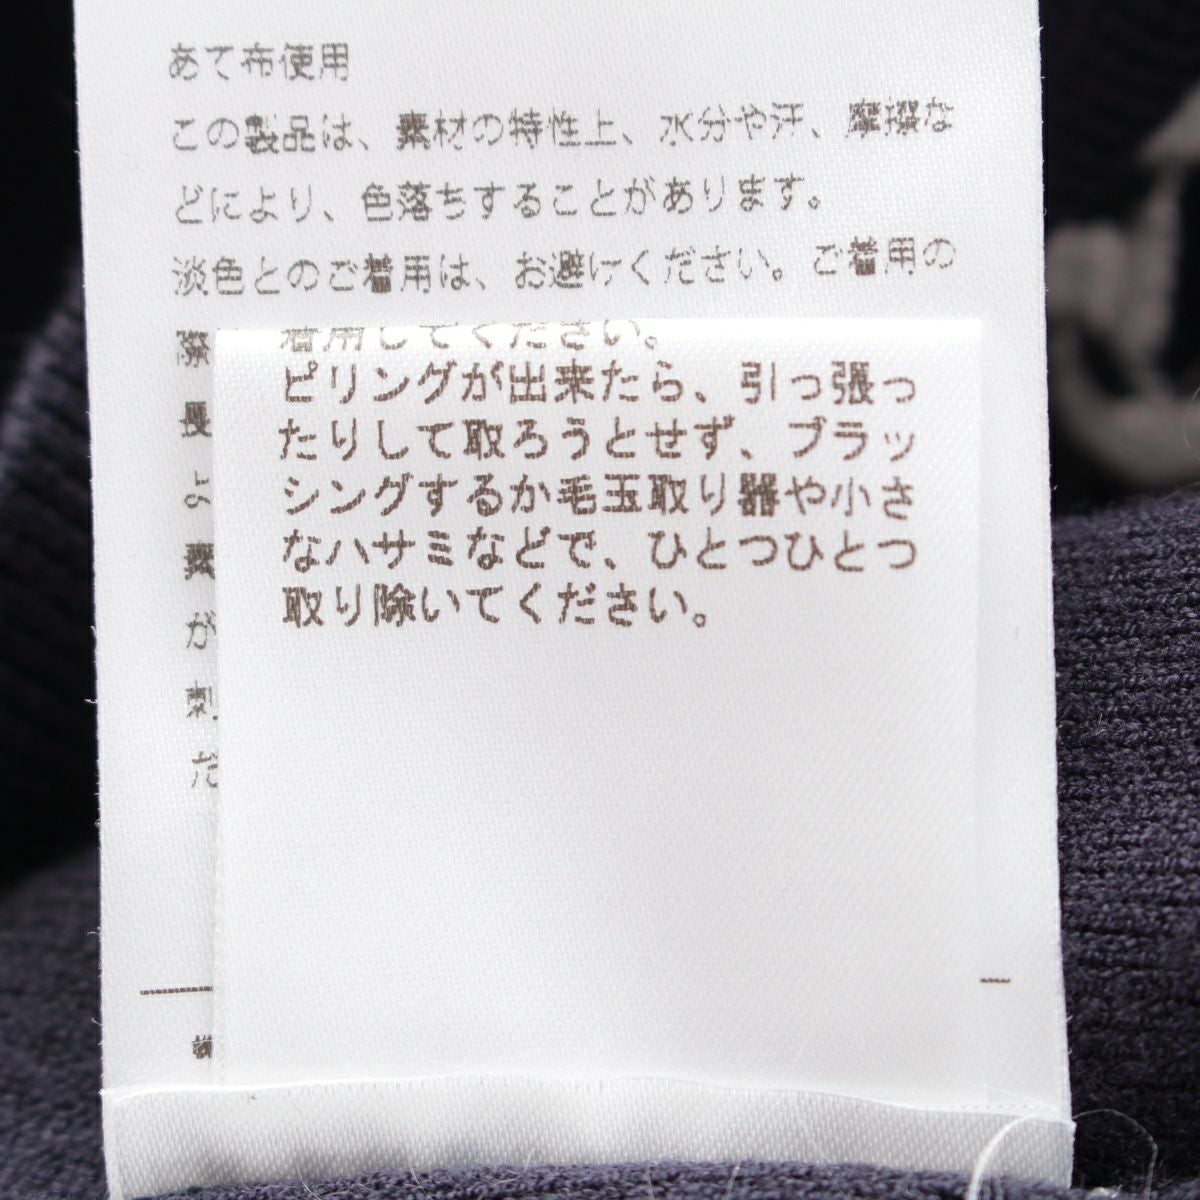 あて布使用
この製品は、素材の特性上、水分や汗、摩擦な
どにより、色落ちすることがあります。
淡色とのご着用は、お避けください。ご着用の
際
長
よ
が
刺
だ
着用してください。
ピリングが出来たら、引っ張っ
たりして取ろうとせず、ブラッ
シングするか毛玉取り器や小さ
なハサミなどで、ひとつひとつ
取り除いてください。